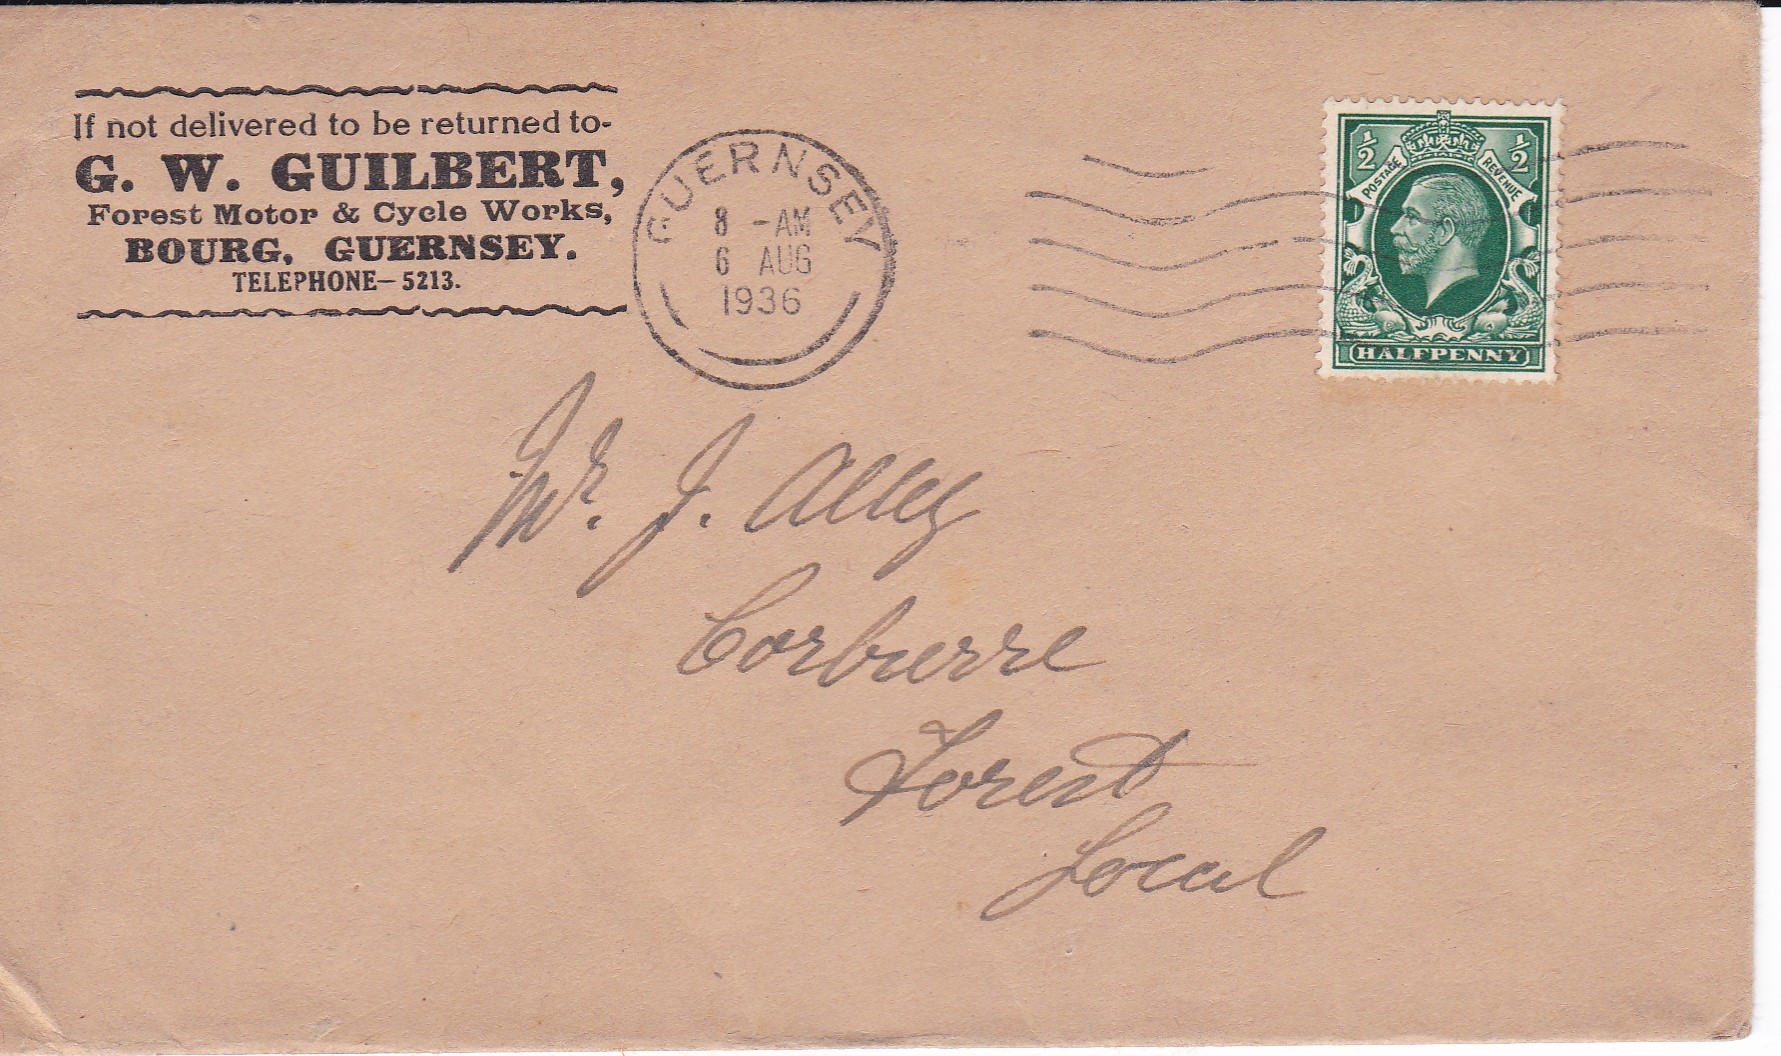 If not delivered to be returned to-
G. W. GUILBERT,
Forest Motor & Cycle Works,
BOURG, GUERNSEY.
TELEPHONE– 5213.
GUERNSEY
8 - AM
6 AUG
1936
½ ½
POSTAGE REVENUE
HALFPENNY
Mr. J. Alley
Corbierre
Forest
Local